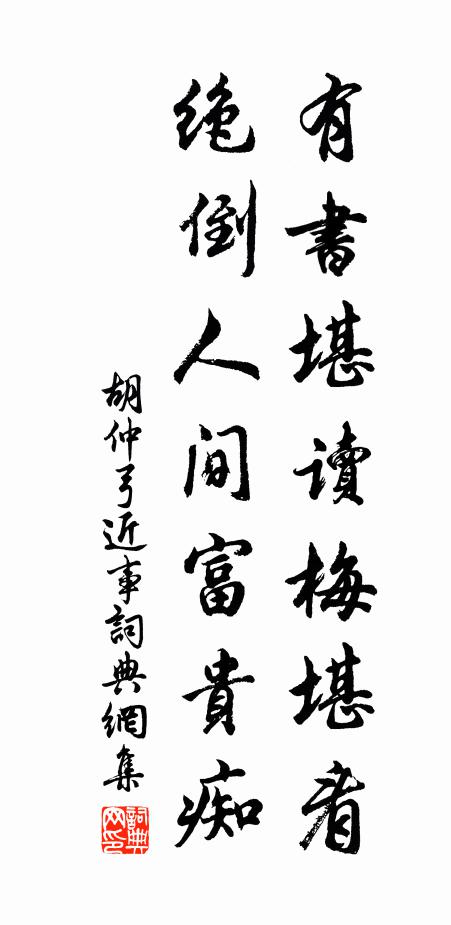 有書堪讀梅堪看
絶倒人間富貴痴
胡仲弓近事詞典網集
詞典网印